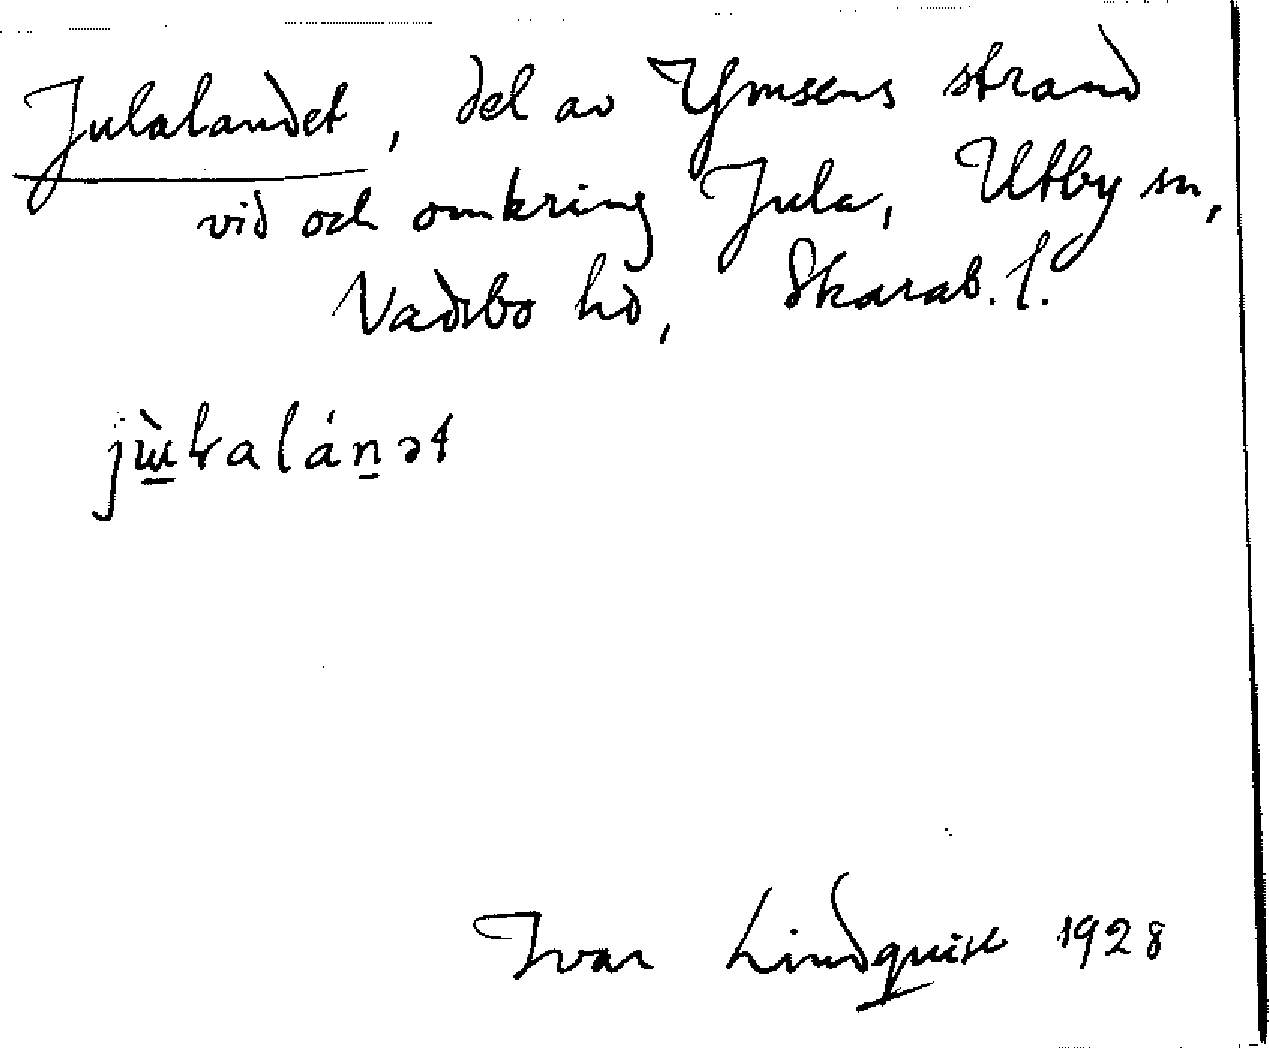 Julalandet, del av Ymsens strand
vid och omkring Jula, Utby sn,
Vadsbo hd, Skarab. l.
Ivar Lindquist 1928